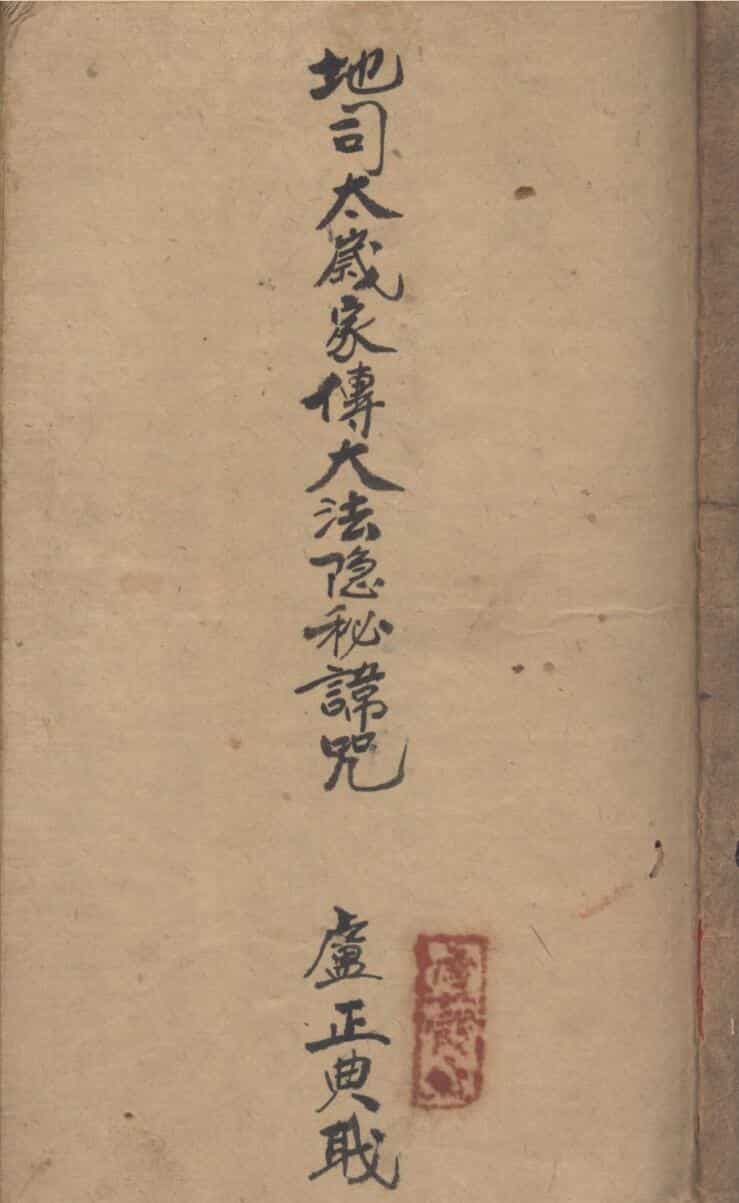 地司太歲家傳大法隐秘諱咒
盧正典